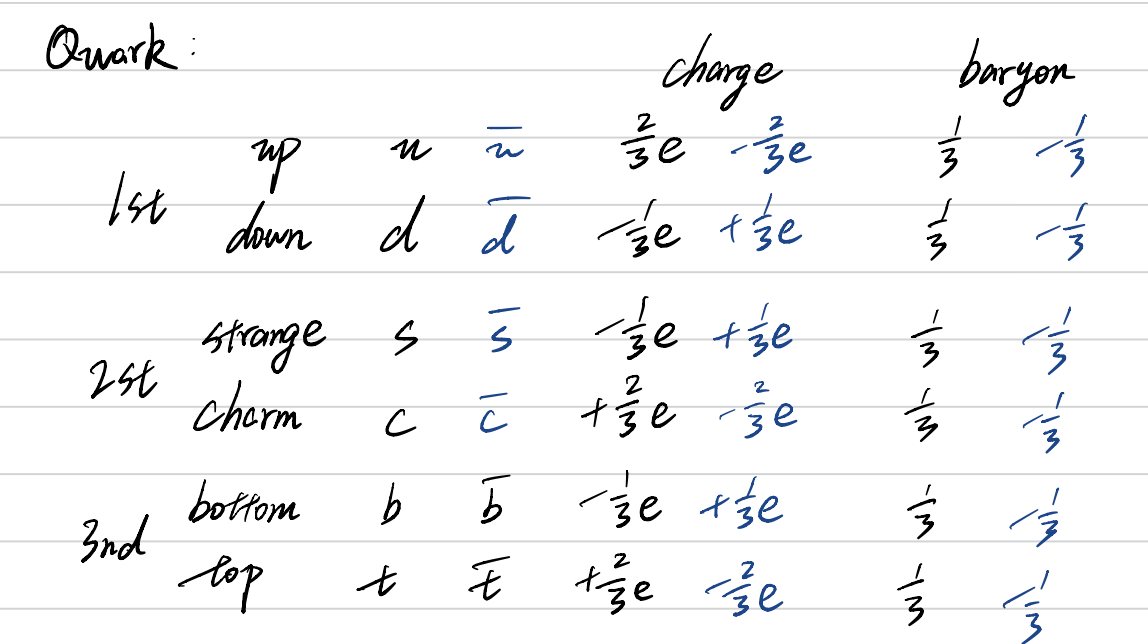 Quark:
charge baryon
1st
up u u̅ 2/3 e -2/3 e 1/3 -1/3
down d d̅ -1/3 e +1/3 e 1/3 -1/3
2st
strange s s̅ -1/3 e +1/3 e 1/3 -1/3
charm c c̅ +2/3 e -2/3 e 1/3 -1/3
3nd
bottom b b̅ -1/3 e +1/3 e 1/3 -1/3
top t t̅ +2/3 e -2/3 e 1/3 -1/3